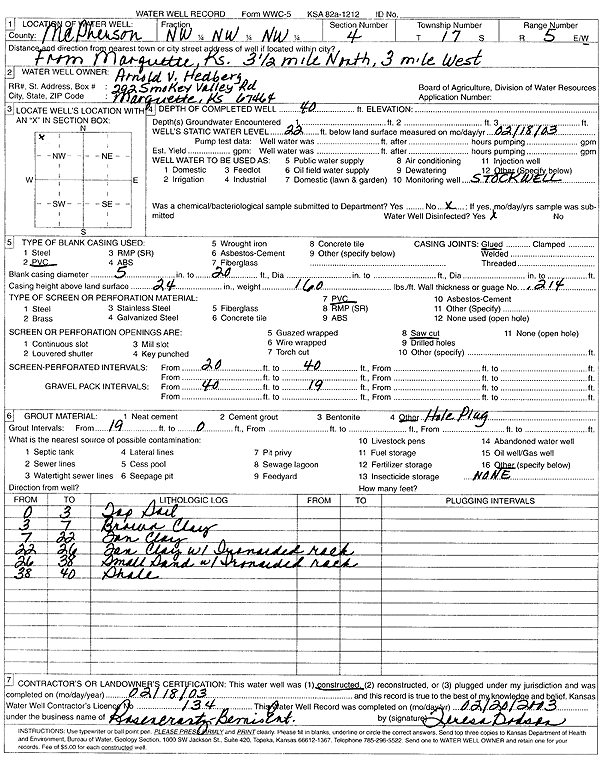 WATER WELL RECORD Form WWC-5 KSA 82a-1212 ID No.
1 LOCATION OF WELL: Fraction Section Number Township Number Range Number
County: McPherson NW ¼ NW ¼ NW ¼ 4 T 17 S R 5 E/W
Distance and direction from nearest town or city street address of well if located within city?
From Marquette, Ks. 3 1/2 mile North, 3 mile West
2 WATER WELL OWNER: Arnold V. Hedberg
RR#, St. Address, Box # : 292 Smokey Valley Rd Board of Agriculture, Division of Water Resources
City, State, ZIP Code : Marquette, Ks 67464 Application Number:
3 LOCATE WELL'S LOCATION WITH AN "X" IN SECTION BOX:
N
X
NW NE
W E
SW SE
S
4 DEPTH OF COMPLETED WELL 40 ft. ELEVATION:
Depth(s) Groundwater Encountered 1 ft. 2 ft. 3 ft.
WELL'S STATIC WATER LEVEL 22 ft. below land surface measured on mo/day/yr 02/18/03
Pump test data: Well water was ft. after hours pumping gpm
Est. Yield gpm: Well water was ft. after hours pumping gpm
WELL WATER TO BE USED AS: 5 Public water supply 8 Air conditioning 11 Injection well
1 Domestic 3 Feedlot 6 Oil field water supply 9 Dewatering 12 Other (Specify below)
2 Irrigation 4 Industrial 7 Domestic (lawn & garden) 10 Monitoring well STOCKWELL
Was a chemical/bacteriological sample submitted to Department? Yes No X ; If yes, mo/day/yrs sample was sub-
mitted Water Well Disinfected? Yes X No
5 TYPE OF BLANK CASING USED: 5 Wrought iron 8 Concrete tile CASING JOINTS: Glued Clamped
1 Steel 3 RMP (SR) 6 Asbestos-Cement 9 Other (specify below) Welded
2 PVC 4 ABS 7 Fiberglass Threaded
Blank casing diameter 5 in. to 20 ft., Dia in. to ft., Dia in. to ft.
Casing height above land surface 24 in., weight 160 lbs./ft. Wall thickness or guage No. .214
TYPE OF SCREEN OR PERFORATION MATERIAL: 7 PVC 10 Asbestos-Cement
1 Steel 3 Stainless Steel 5 Fiberglass 8 RMP (SR) 11 Other (Specify)
2 Brass 4 Galvanized Steel 6 Concrete tile 9 ABS 12 None used (open hole)
SCREEN OR PERFORATION OPENINGS ARE: 5 Guazed wrapped 8 Saw cut 11 None (open hole)
1 Continuous slot 3 Mill slot 6 Wire wrapped 9 Drilled holes
2 Louvered shutter 4 Key punched 7 Torch cut 10 Other (specify) ft.
SCREEN-PERFORATED INTERVALS: From 20 ft. to 40 ft., From ft. to ft.
From ft. to ft., From ft. to ft.
GRAVEL PACK INTERVALS: From 40 ft. to 19 ft., From ft. to ft.
From ft. to ft., From ft. to ft.
6 GROUT MATERIAL: 1 Neat cement 2 Cement grout 3 Bentonite 4 Other Hole Plug
Grout Intervals: From 19 ft. to 0 ft., From ft. to ft., From ft. to ft.
What is the nearest source of possible contamination: 10 Livestock pens 14 Abandoned water well
1 Septic tank 4 Lateral lines 7 Pit privy 11 Fuel storage 15 Oil well/Gas well
2 Sewer lines 5 Cess pool 8 Sewage lagoon 12 Fertilizer storage 16 Other (specify below)
3 Watertight sewer lines 6 Seepage pit 9 Feedyard 13 Insecticide storage NONE
Direction from well? How many feet?
FROM TO LITHOLOGIC LOG FROM TO PLUGGING INTERVALS
0 3 Top Soil
3 7 Brown Clay
7 22 Tan Clay
22 26 Tan Clay w/ Ironsided rock
26 38 Small Sand w/ Ironsided rock
38 40 Shale
7 CONTRACTOR'S OR LANDOWNER'S CERTIFICATION: This water well was (1) constructed, (2) reconstructed, or (3) plugged under my jurisdiction and was
completed on (mo/day/year) 02/18/03 and this record is true to the best of my knowledge and belief. Kansas
Water Well Contractor's Licence No 134 This Water Well Record was completed on (mo/day/yr) 02/20/2003
under the business name of Rosencrantz Bemis Ent. by (signature) Teresa Dodson
INSTRUCTIONS: Use typewriter or ball point pen. PLEASE PRESS FIRMLY and PRINT clearly. Please fill in blanks, underline or circle the correct answers. Send top three copies to Kansas Department of Health
and Environment, Bureau of Water, Geology Section, 1000 SW Jackson St., Suite 420, Topeka, Kansas 66612-1367. Telephone 785-296-5522. Send one to WATER WELL OWNER and retain one for your
records. Fee of $5.00 for each constructed well.